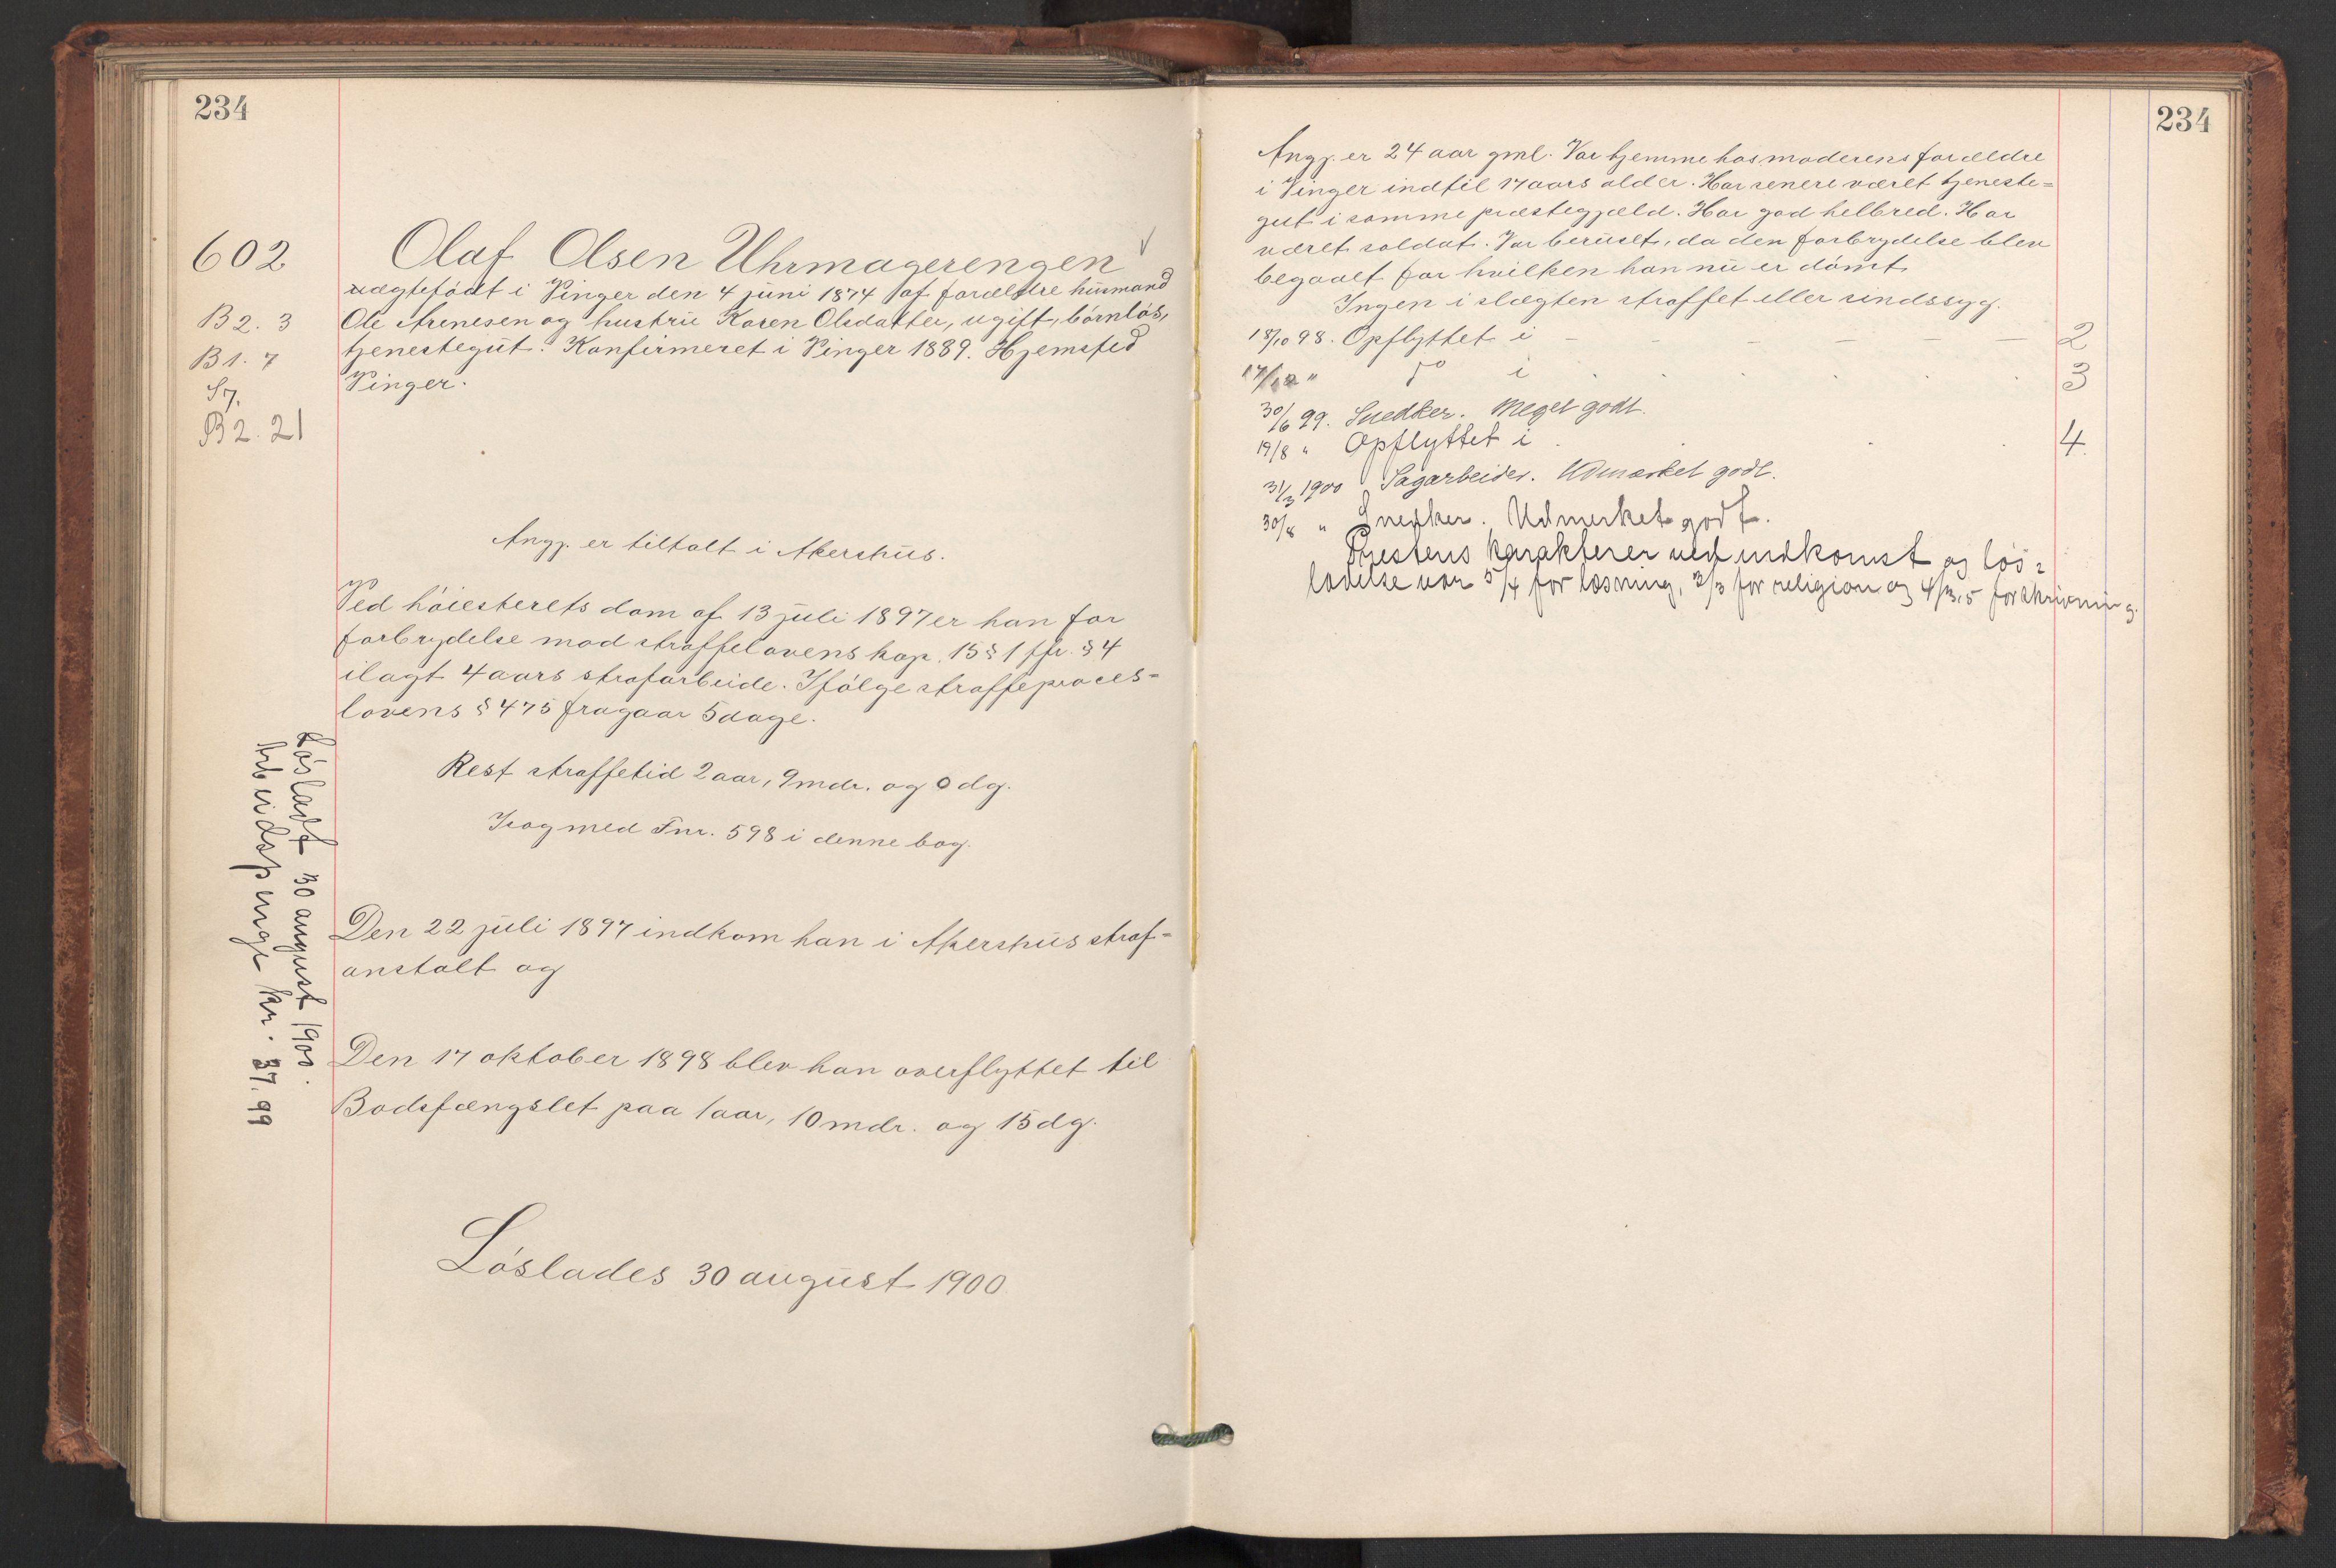 234
602
Olaf Olsen Uhrmagerengen
uægtefödt i Vinger den 4 juni 1874 af forældre husmand
B 2. 3
Ole Arnesen og hustru Karen Olsdatter, ugift, barnlös,
B 1. 7
tjenestegut. Konfirmeret i Vinger 1889. Hjemsted
S 7.
Vinger.
B 2. 21
Angj. er tiltalt i Akershus.
Ved höiesterets dom af 13 juli 1897 er han for
forbrydelse mod straffelovens kap. 15 § 1 jfr. § 4
ilagt 4 aars strafarbeide. Ifölge straffeproces-
lovens § 475 fragaar 5 dage.
Rest straffetid 2 aar, 9 mdr. og 0 dg.
Isag med Fnr. 598 i denne bog.
Den 22 juli 1897 indkom han i Akershus straf-
anstalt og
Den 17 oktober 1898 blev han overflyttet til
Bodsfængslet paa 1 aar, 10 mdr. og 15 dg.
Löslades 30 august 1900
Lösladt 30 august 1900.
Arbeidspenge kr. 37.99
234
Angj. er 24 aar gml. Var hjemme hos moderens forældre
i Vinger indtil 17 aars alder. Har senere været tjeneste-
gut i samme præstegjæld. Har god helbred. Har
været soldat. Var beruset, da den forbrydelse blev
begaaet for hvilken han nu er dömt.
Ingen i slægten straffet eller sindssyg.
18/10 98. Opflyttet i - - - - - 2
17/12 " do i . . . . . 3
30/6 99. Snedker. Meget godt.
19/8 " Opflyttet i . . . . 4.
31/3 1900 Sagarbeider. Udmærket godt.
30/8 " Snedker. Udmerket godt.
Prestens karakterer ved indkomst og lös-
ladelse var 5/4 for læsning, 3/3 for religion og 4/3,5 for skrivning.